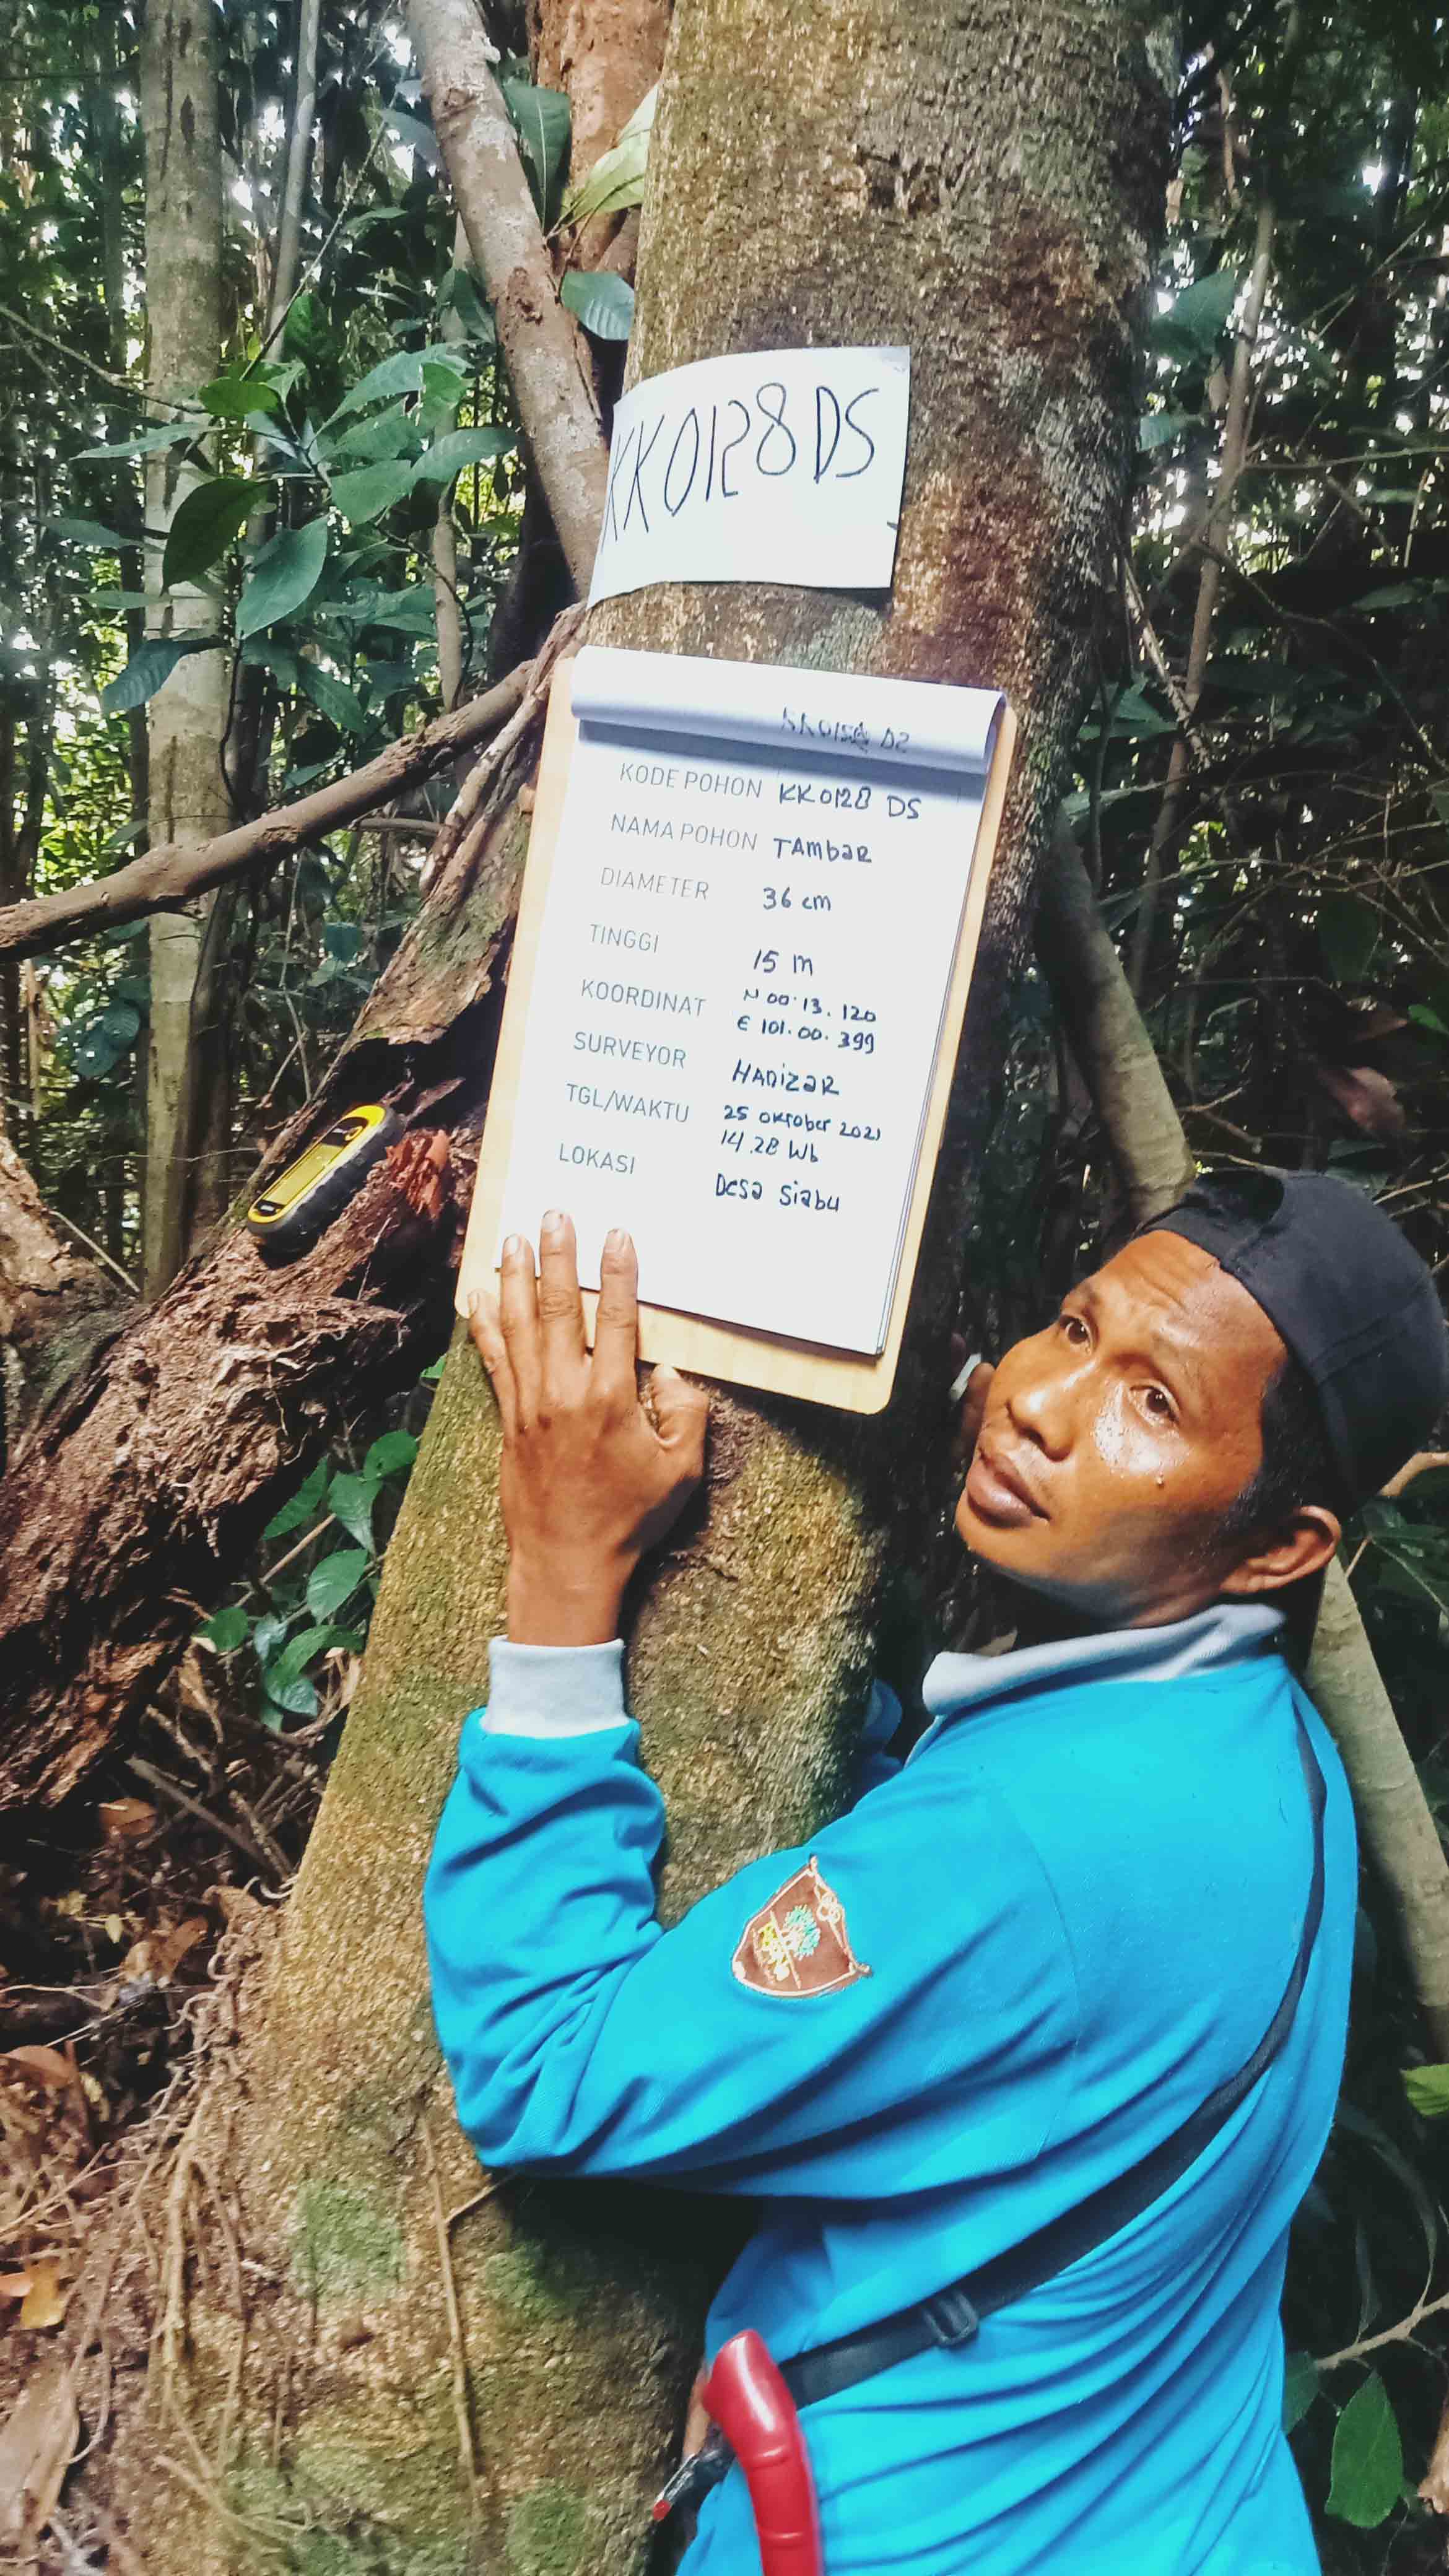 KK0128DS
KODE POHON KK0128 DS
NAMA POHON TAmbaR
DIAMETER 36 cm
TINGGI 15 m
KOORDINAT N 00.13.120
E 101.00.399
SURVEYOR HANizaR
TGL/WAKTU 25 oktober 2021
14.28 Wb
LOKASI Desa Siabu